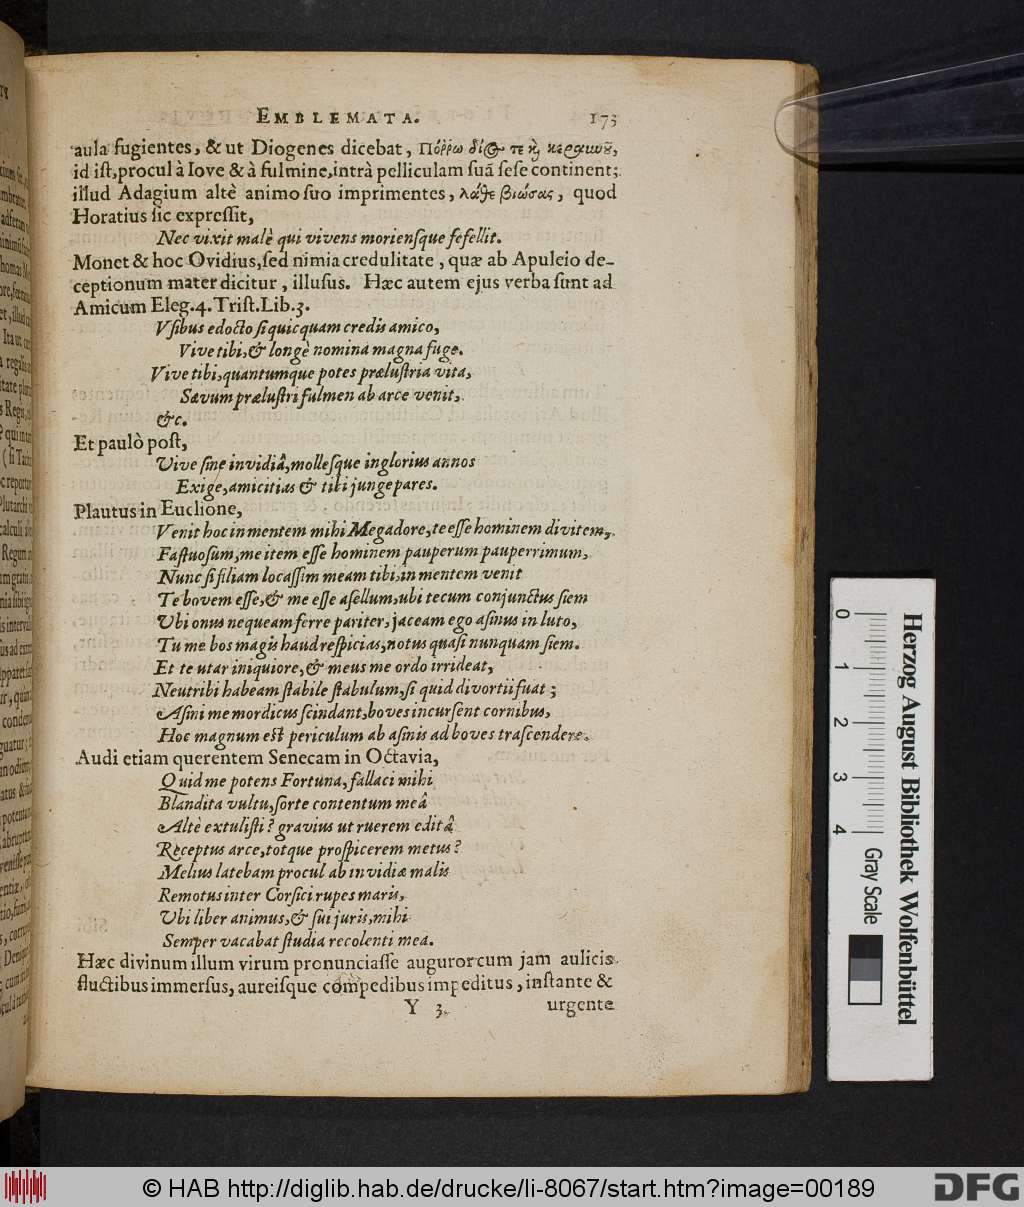 EMBLEMATA. 173
aula fugientes, & ut Diogenes dicebat, Πόῤῥω διός τε ϗ κεραυνοῦ,
id iſt, procul à Iove & à fulmine, intrà pelliculam ſuã ſeſe continent;
illud Adagium altè animo ſuo imprimentes, λάθε βιώσας, quod
Horatius ſic expreſſit,
Nec vixit malè qui vivens morienſque fefellit.
Monet & hoc Ovidius, ſed nimia credulitate, quæ ab Apuleio de-
ceptionum mater dicitur, illuſus. Hæc autem ejus verba ſunt ad
Amicum Eleg. 4. Triſt. Lib. 3.
Vſibus edocto ſi quicquam credis amico,
Vive tibi, & longè nomina magna fuge.
Vive tibi, quantumque potes præluſtria vita,
Sævum præluſtri fulmen ab arce venit,
&c.
Et paulò poſt,
Vive ſine invidiâ, molleſque inglorius annos
Exige, amicitias & tibi junge pares.
Plautus in Euclione,
Venit hoc in mentem mihi Megadore, te eſſe hominem divitem,
Faſtuoſum, me item eſſe hominem pauperum pauperrimum,
Nunc ſi filiam locaſſim meam tibi, in mentem venit
Te bovem eſſe, & me eſſe aſellum, ubi tecum conjunctus ſiem
Vbi onus nequeam ferre pariter, jaceam ego aſinus in luto,
Tu me bos magis haud reſpicias, notus quaſi nunquam ſiem.
Et te utar iniquiore, & meus me ordo irrideat,
Neutribi habeam ſtabile ſtabulum, ſi quid divortii fuat;
Aſini me mordicus ſcindant, boves incurſent cornibus,
Hoc magnum eſt periculum ab aſinis ad boves traſcendere.
Audi etiam querentem Senecam in Octavia,
Quid me potens Fortuna, fallaci mihi
Blandita vultu, ſorte contentum meâ
Altè extuliſti? gravius ut ruerem editâ
Receptus arce, totque proſpicerem metus?
Melius latebam procul ab invidiæ malis
Remotus inter Corſici rupes maris,
Vbi liber animus, & ſui juris, mihi
Semper vacabat ſtudia recolenti mea.
Hæc divinum illum virum pronunciaſſe auguror cum jam aulicis
fluctibus immerſus, aureiſque compedibus impeditus, inſtante &
Y 3. urgente
Herzog August Bibliothek Wolfenbüttel
0 1 2 3 4
Gray Scale
© HAB http://diglib.hab.de/drucke/li-8067/start.htm?image=00189
DFG